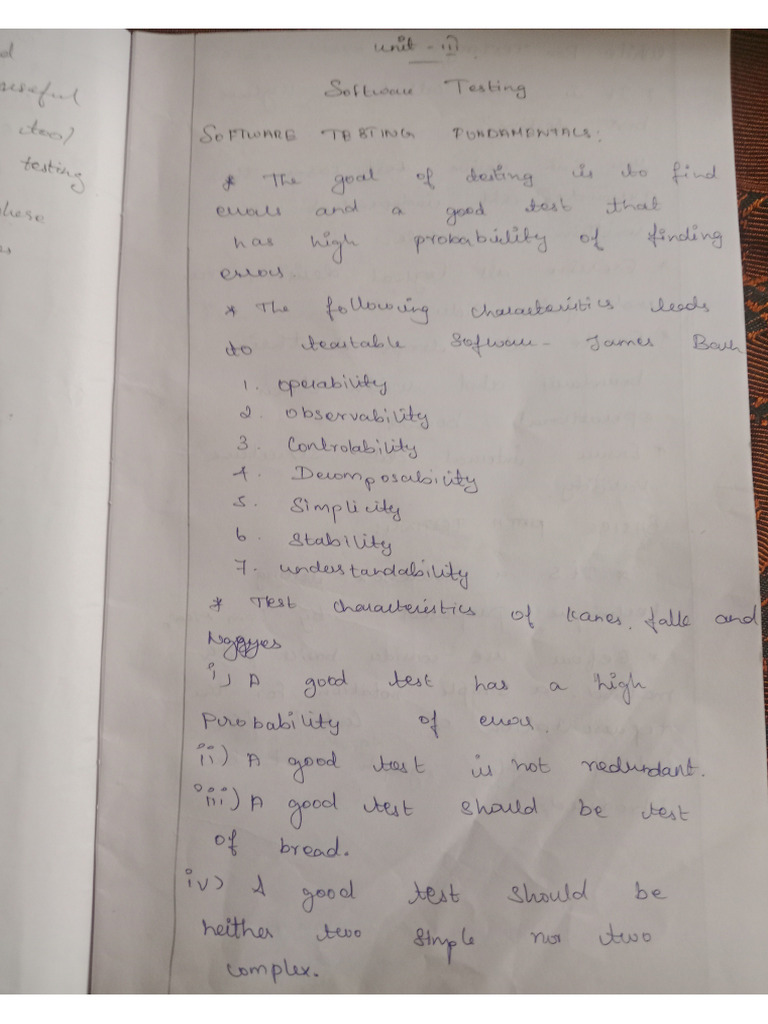 useful
testing
Unit - III
Software Testing
SOFTWARE TESTING FUNDAMENTALS:
* The goal of testing is to find
errors and a good test that
has high probability of finding
errors.
* The following characteristics leads
to teastable Sofware - James Bach
1. operability
2. observability
3. Controlability
4. Decomposability
5. Simplicity
6. Stability
7. understandability
* Test characteristics of kanes, falk and
i) A good test has a high
Probability of error.
ii) A good test is not redundant.
iii) A good test should be test
of bread.
iv) A good test should be
neither two simple nor two
complex.